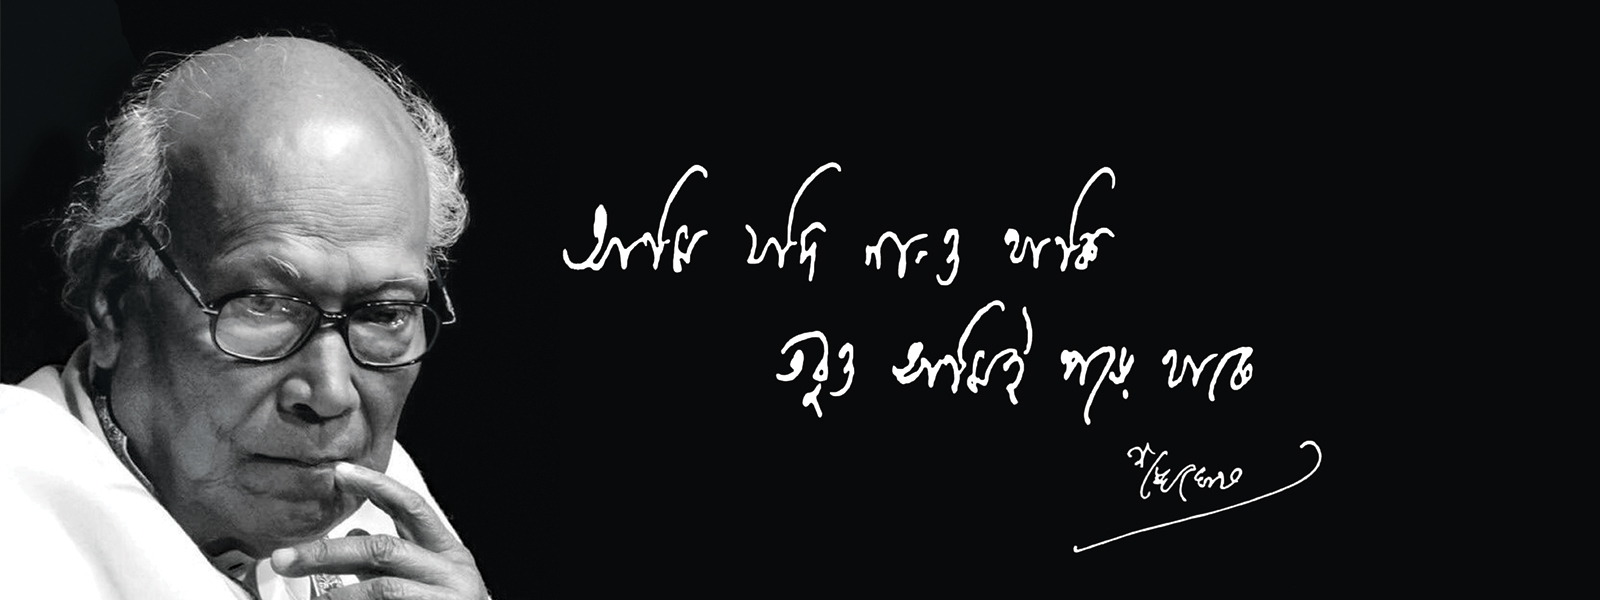 আমি যদি না-ও থাকি
তবুও আমিই পড়ে থাকে